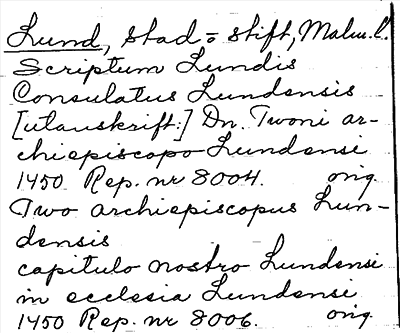 Lund, stad o stift, Malm. l.
Scriptum Lundis
Consulatus Lundensis
[utanskrift:] Dn. Twoni ar-
chiepiscopo Lundensi
1450 Rep. nr 8004. orig
Two archiepiscopus Lun-
densis
capitulo nostro Lundensi
in ecclesia Lundensi
1450 Rep. nr 8006. orig